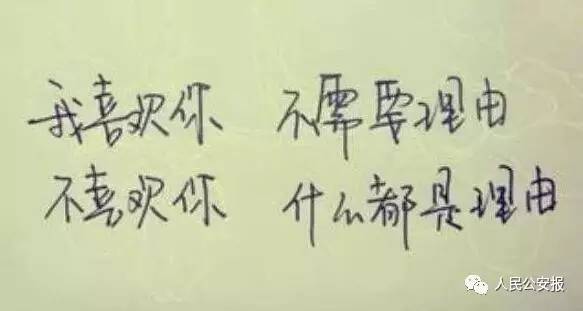 我喜欢你 不需要理由
不喜欢你 什么都是理由
人民公安报